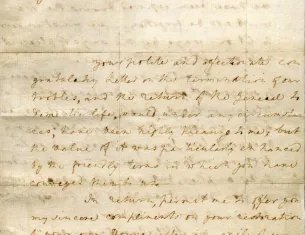 your polite and affectionate con
gratulatory letter on the termination of our
troubles, and the return of the General to
domestic life, would under any circumstan
ces, have been highly pleasing to me; but
the value of it was particularly enhanced
by the friendly terms in which you have
conveyed them to me.
In return, permit me to offer you
my sincere compliments on your restoration